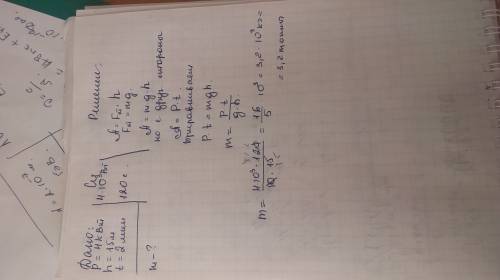 Дано:
P = 4 кВт
h = 15 м
t = 2 мин
m - ?
Си
4·10³ Вт
120 с.
Решение:
A = Fт · h
Fт = mg
A = m g · h
но с друг. стороны
A = P · t.
приравниваем
P t = mgh.
m = P t / g · h
m = 4·10³ · 120 / 10 · 15 = 16 / 5 · 10³ = 3,2 · 10³ кг =
= 3,2 тонны